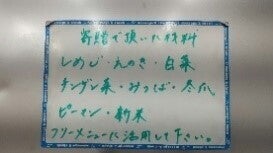 寄贈で頂いた材料
しめじ・えのき・白菜
チンゲン菜・みつば・冬瓜
ピーマン・新米
フリーメニューに活用して下さい。